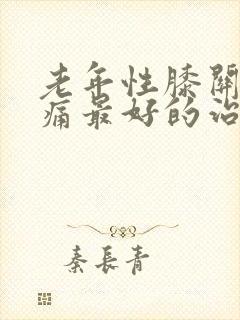 老年性膝關
痛最好的治
秦長青